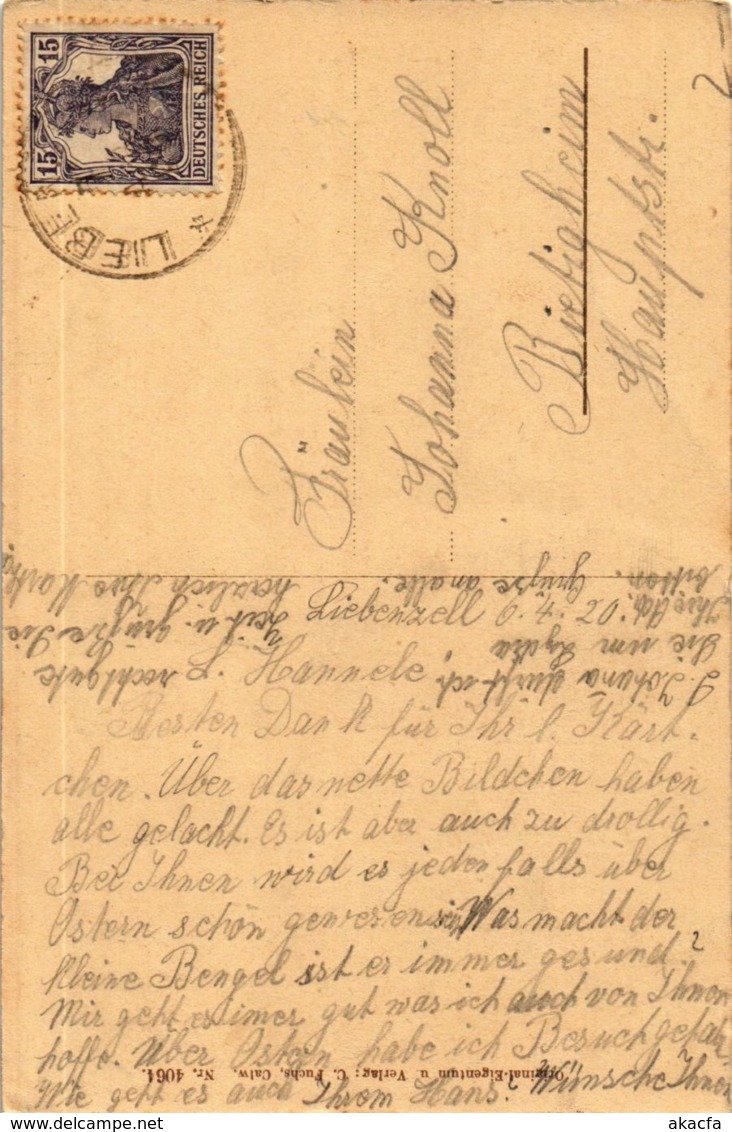 15 15
DEUTSCHES REICH
* LIEBE
Fräulein
Johanna Knoll
Bietigheim
Hauptstr.
2
Liebenzell 6.4.20.
L. Hannele,
Besten Dank für Ihr l. Kärt-
chen. Über das nette Bildchen haben
alle gelacht. Es ist aber auch zu drollig.
Bei Ihnen wird es jedenfalls über
Ostern schön gewesen sein. Was macht der
kleine Bengel ist er immer gesund?
Mir geht es imer gut was ich auch von Ihnen
hoffe. Über Ostern habe ich Besuch gehabt.
Wie geht es auch Ihrem Hans? Wünsche Ihnen
recht gute
Zeit u. grüße Sie
herzlich Ihre
Grüße an alle.
Original-Eigentum u. Verlag: C. Fuchs, Calw. Nr. 4064.
akacfa